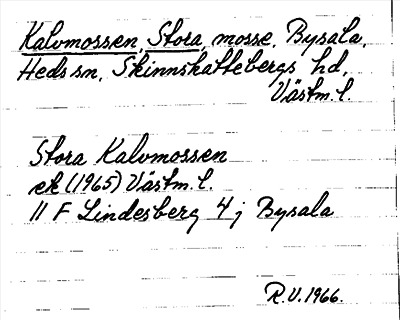 Kalvmossen, Stora, mosse, Bysala,
Heds sn, Skinnskattebergs hd,
Västm. l.
Stora Kalvmossen
ek (1965) Västm. l.
11 F Lindesberg 4 j Bysala
R.V. 1966.